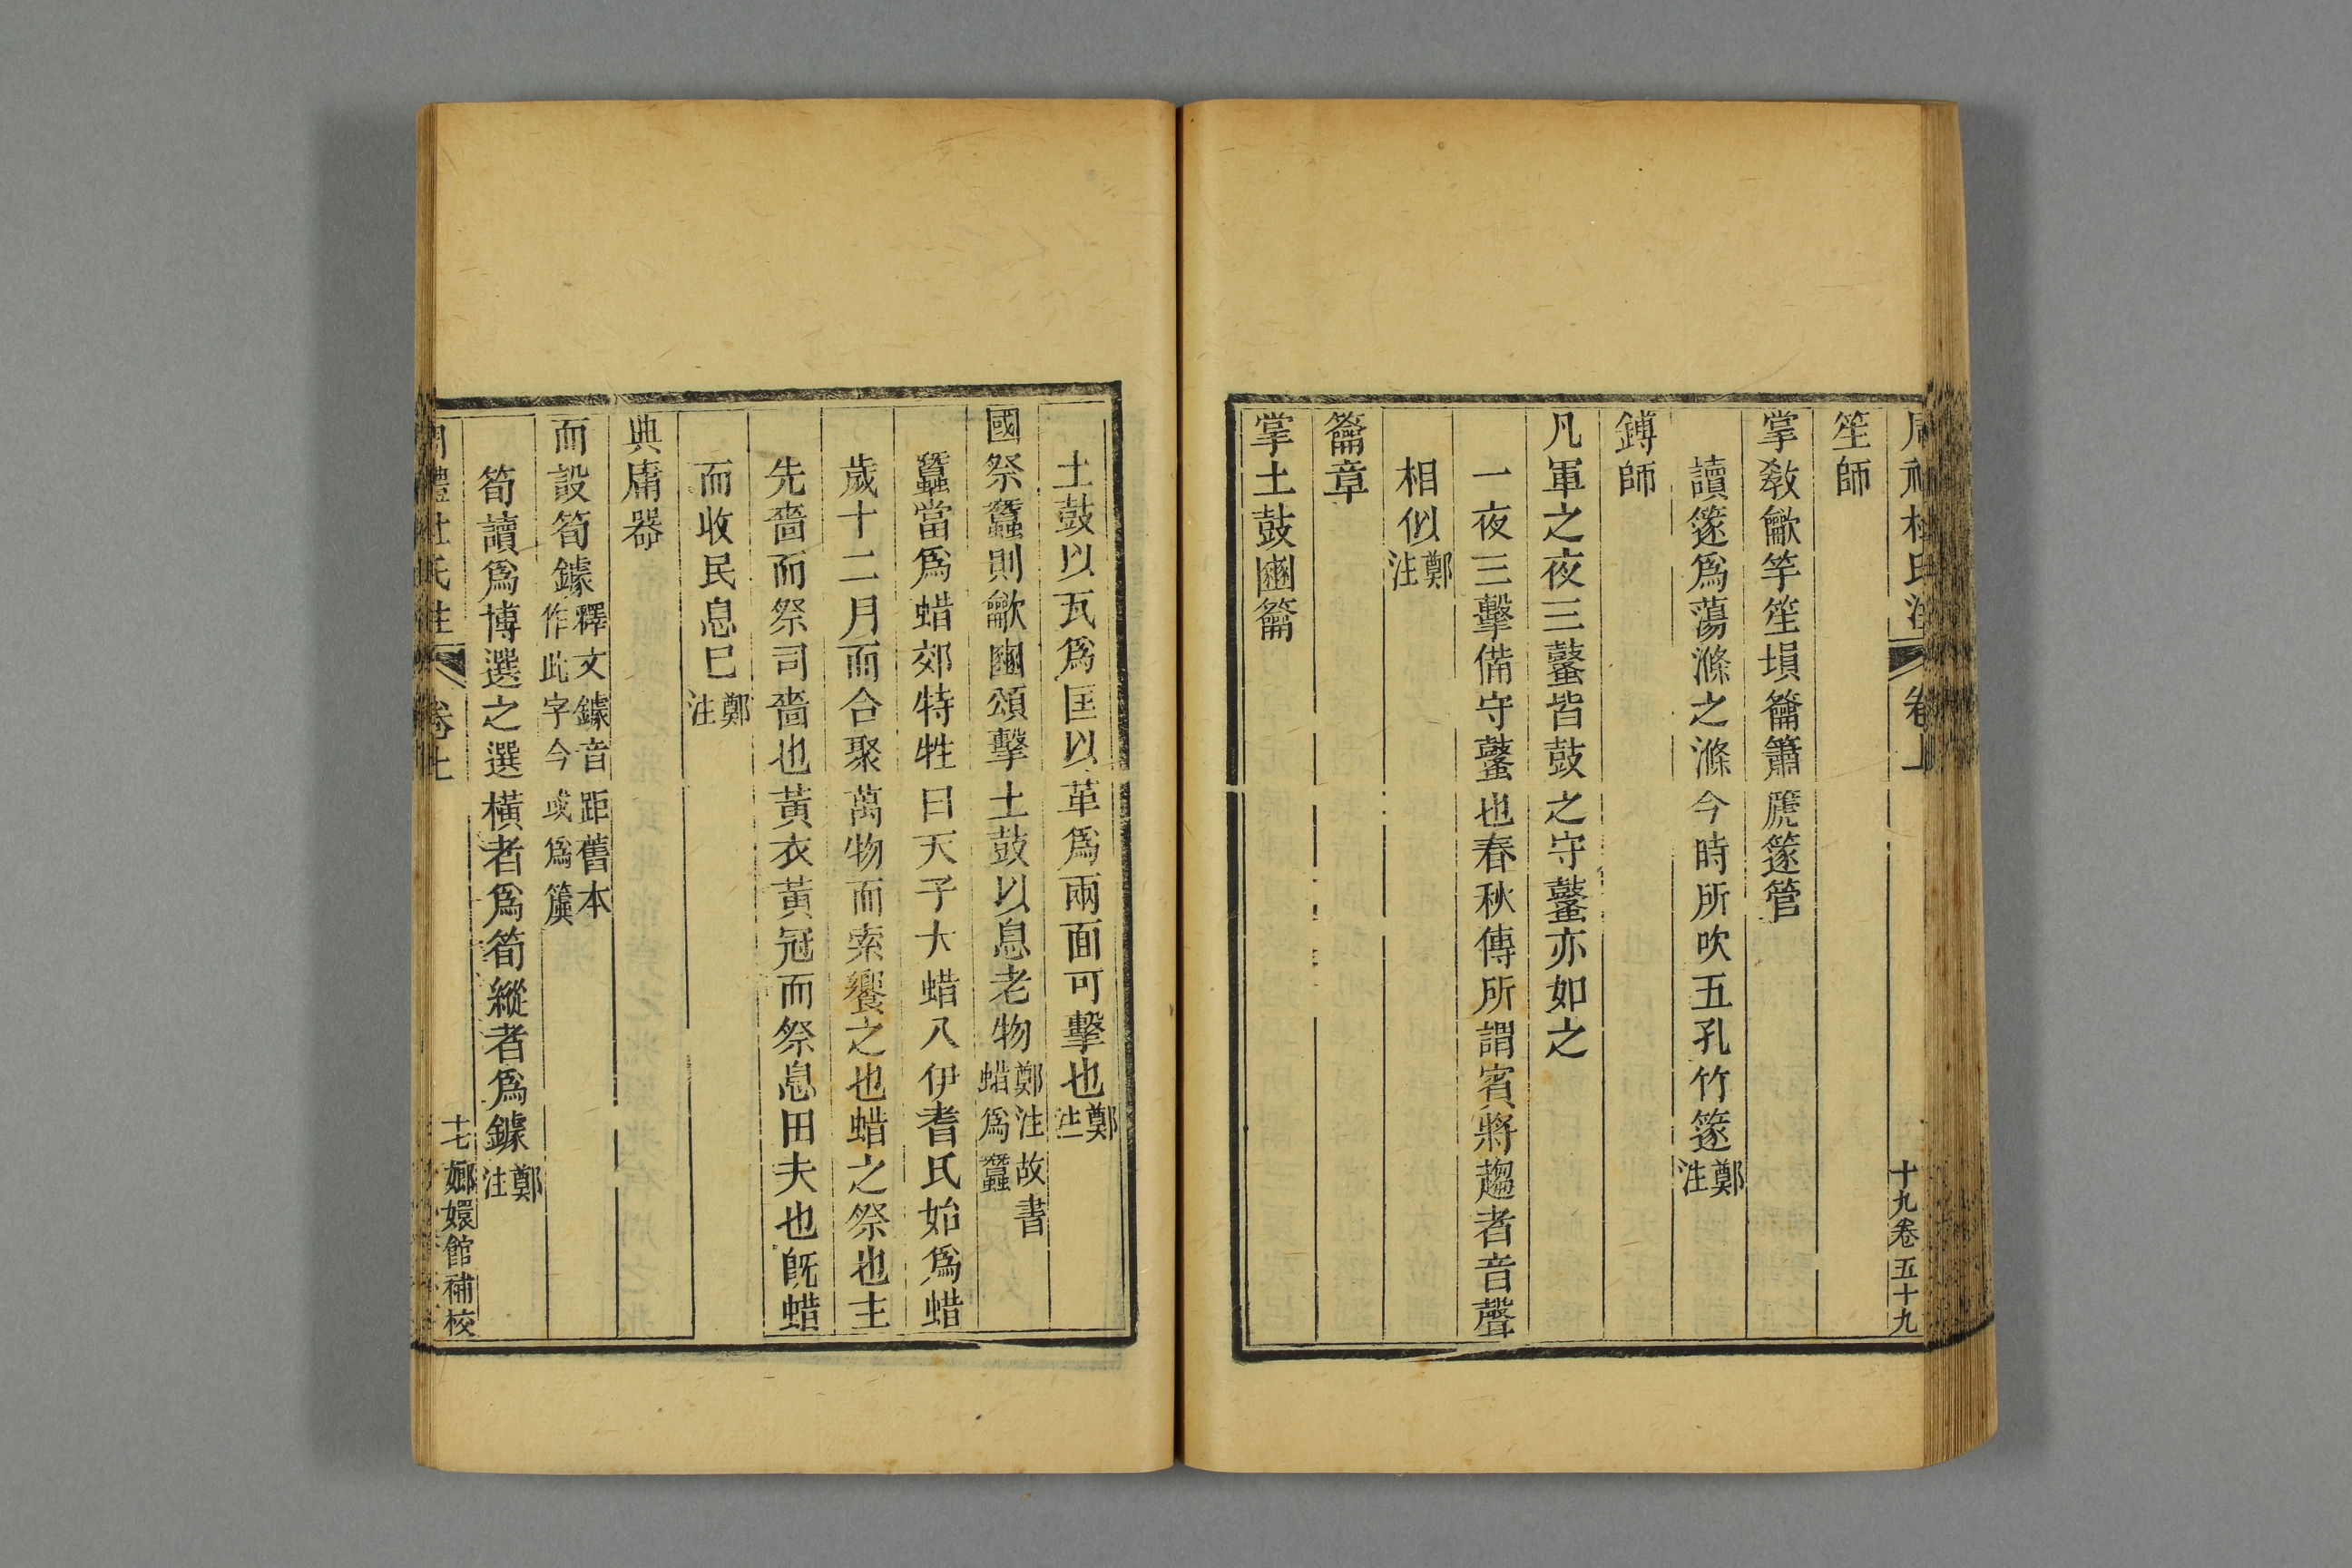 周禮杜氏注 卷上 十九卷五十九
笙師
掌敎龡竽笙塤籥簫篪篴管
讀篴爲蕩滌之滌今時所吹五孔竹篴鄭注
鎛師
凡軍之夜三鼜皆鼓之守鼜亦如之
一夜三擊備守鼜也春秋傳所謂賓將趨者音聲
相似鄭注
籥章
掌土鼓豳籥
土鼓以瓦爲匡以革爲兩面可擊也鄭注
國祭蠶則龡豳頌擊土鼓以息老物鄭注故書蜡爲蠶
蠶當爲蜡郊特牲曰天子大蜡八伊耆氏始爲蜡
歲十二月而合聚萬物而索饗之也蜡之祭也主
先嗇而祭司嗇也黃衣黃冠而祭息田夫也旣蜡
而收民息巳鄭注
典庸器
而設筍鐻釋文鐻音距舊本作此字今或爲簴
筍讀爲博選之選橫者爲筍縱者爲鐻鄭注
周禮杜氏注 卷上 十七 嫏嬛館補校